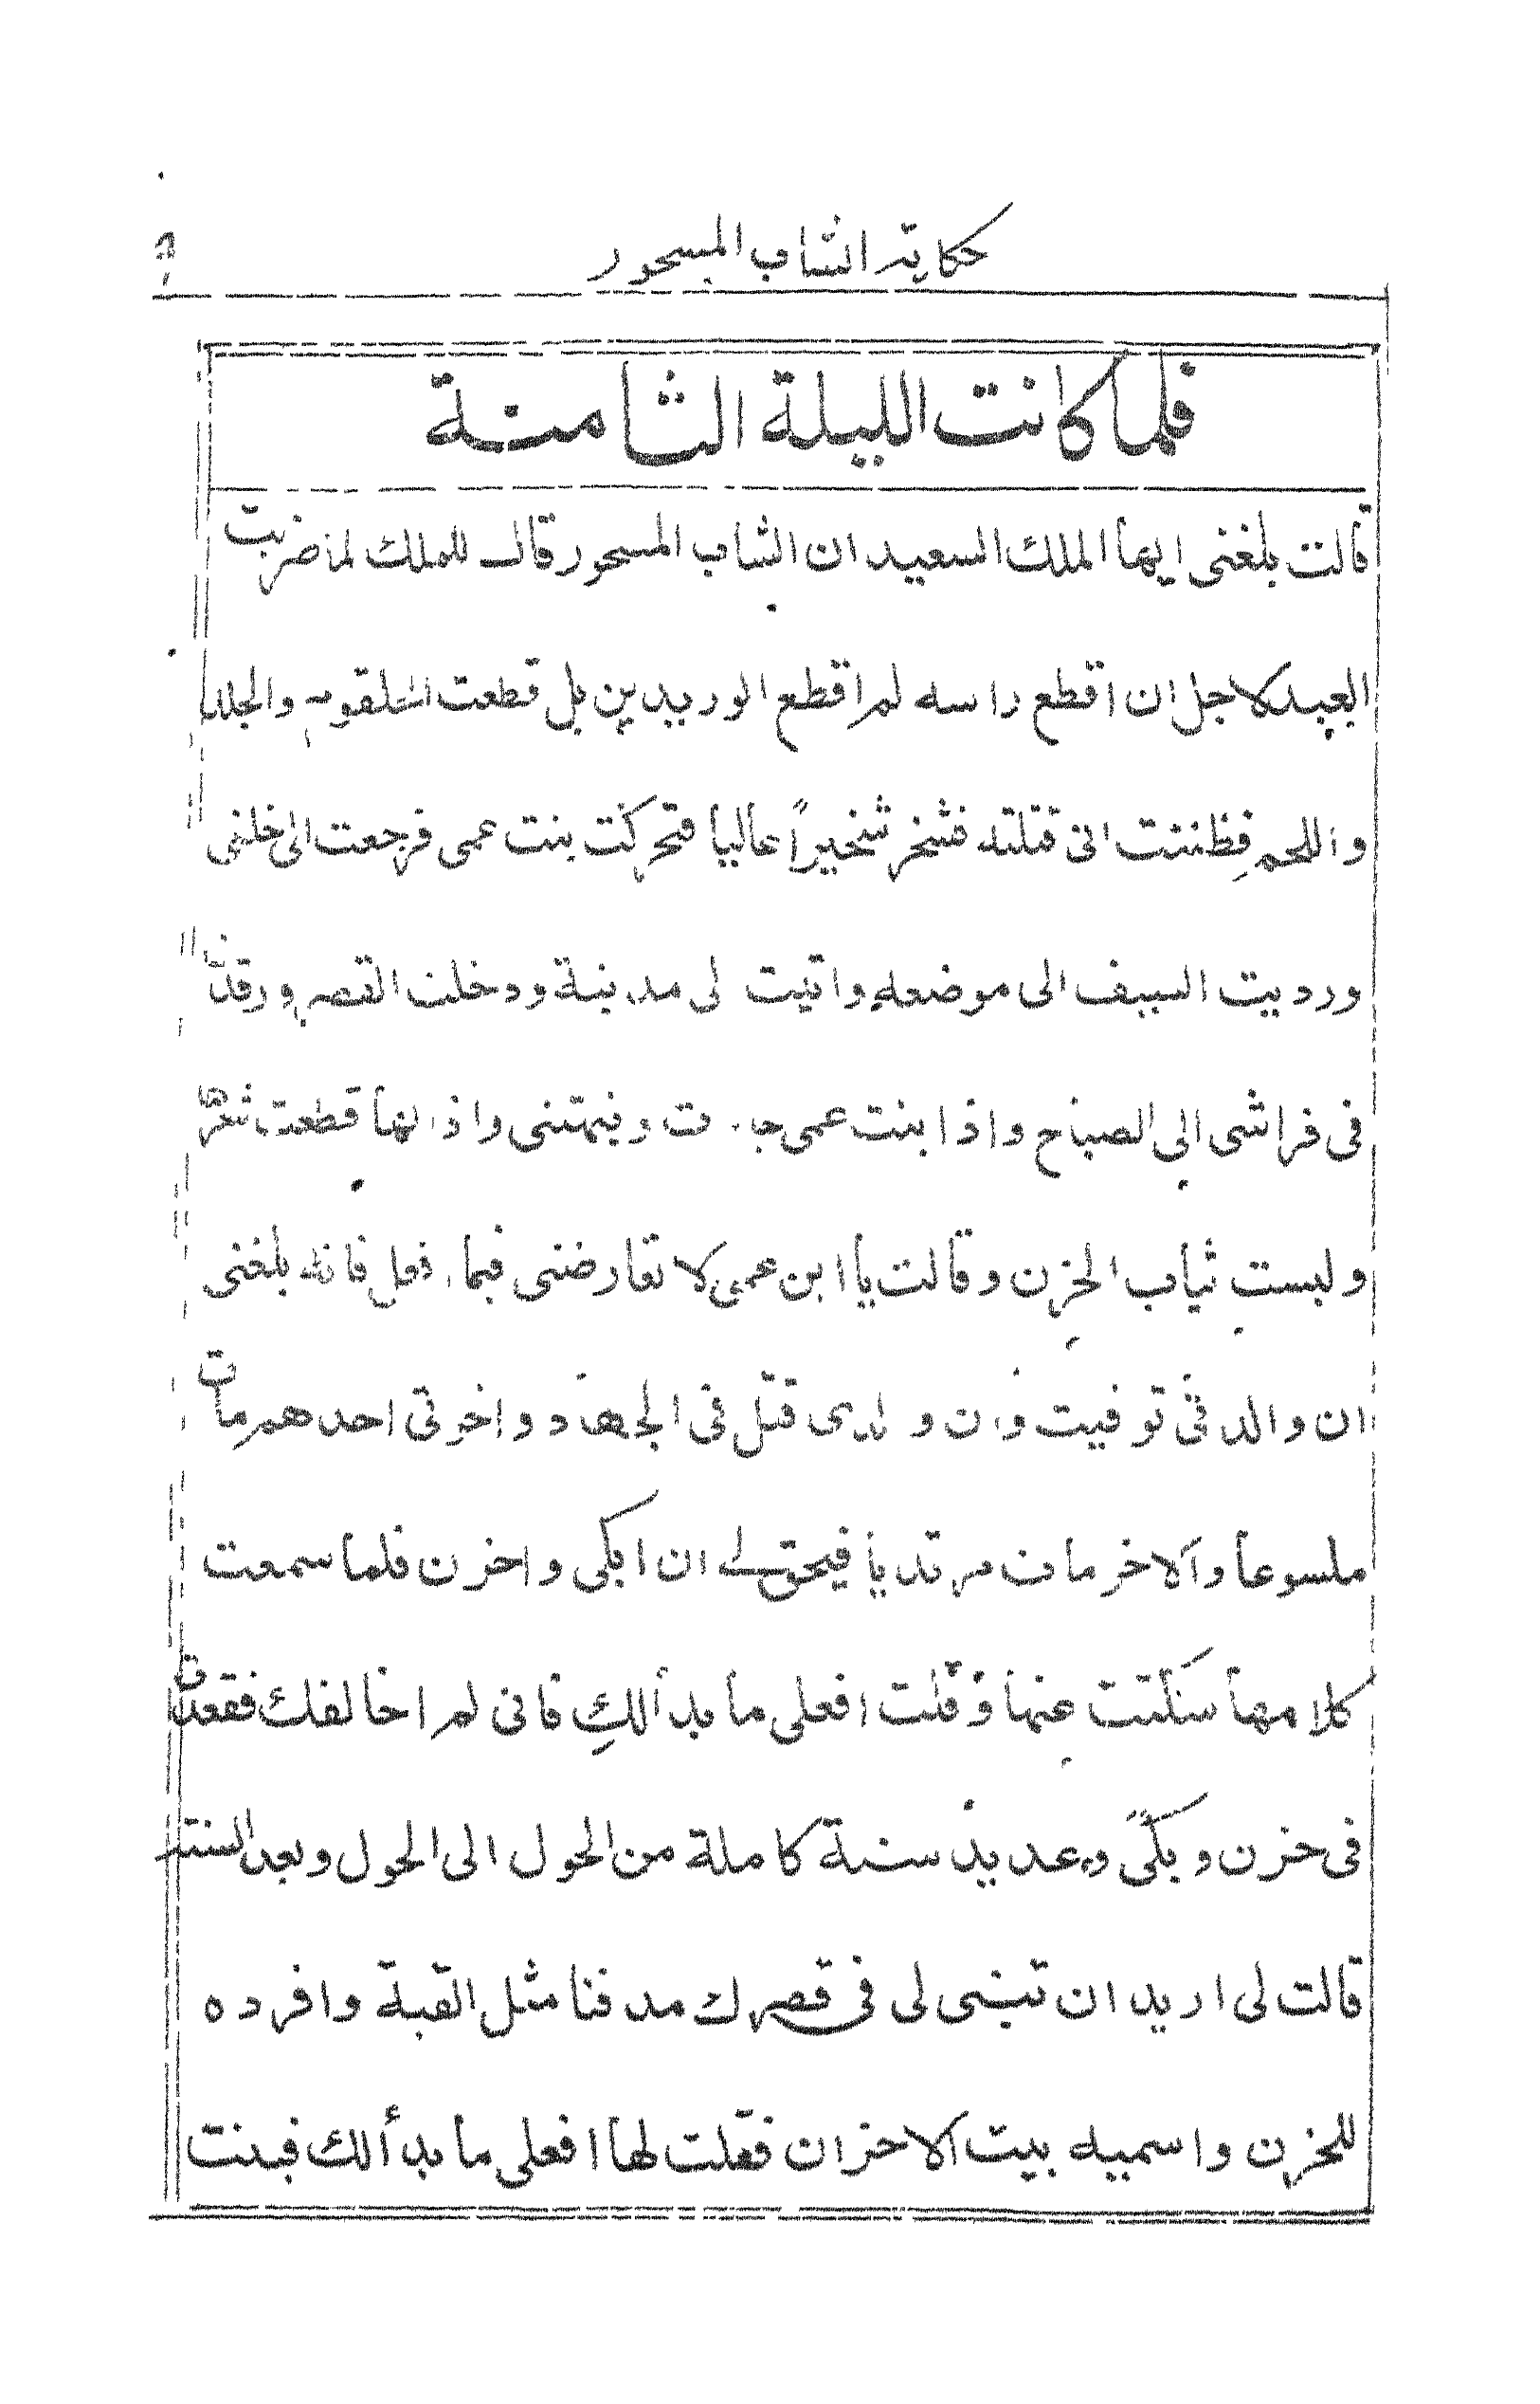 حكاية الشاب المسحور
فلما كانت الليلة الثامنة
قالت بلغنى ايها الملك السعيد ان الشاب المسحور قال للملك لما ضربت
العبد لاجل ان اقطع راسه لم اقطع الوريدين بل قطعت الحلقوم والجلد
واللحم فظننت انى قتلته فشخر شخيراً عاليا فتحركت بنت عمى فرجعت الى خلفى
ورديت السيف الى موضعه واتيت الى مدينة ودخلت القصر ورقدت
فى فراشى الى الصباح واذا بنت عمى جات ونبهتنى واذا بها قطعت شعرها
ولبست ثياب الحزن وقالت يا ابن عمى لا تعارضنى فيما افعل فانه بلغنى
ان والدتى توفيت وان والدى قتل فى الجهاد واخوتى احدهم مات
ملسوعا والاخر مات مرتديا فيحق لى ان ابكى واحزن فلما سمعت
كلامها سكتت عنها وقلت افعلى ما بدألكِ فانى لم اخالفك فقعدت
فى حزن وبكىً وعديد سنة كاملة من الحول الى الحول وبعد السنة
قالت لى اريد ان تبنى لى فى قصرك مدفنا مثل القبة وافرده
للحزن واسميه بيت الاحزان فقلت لها افعلى ما بدألك فبنت